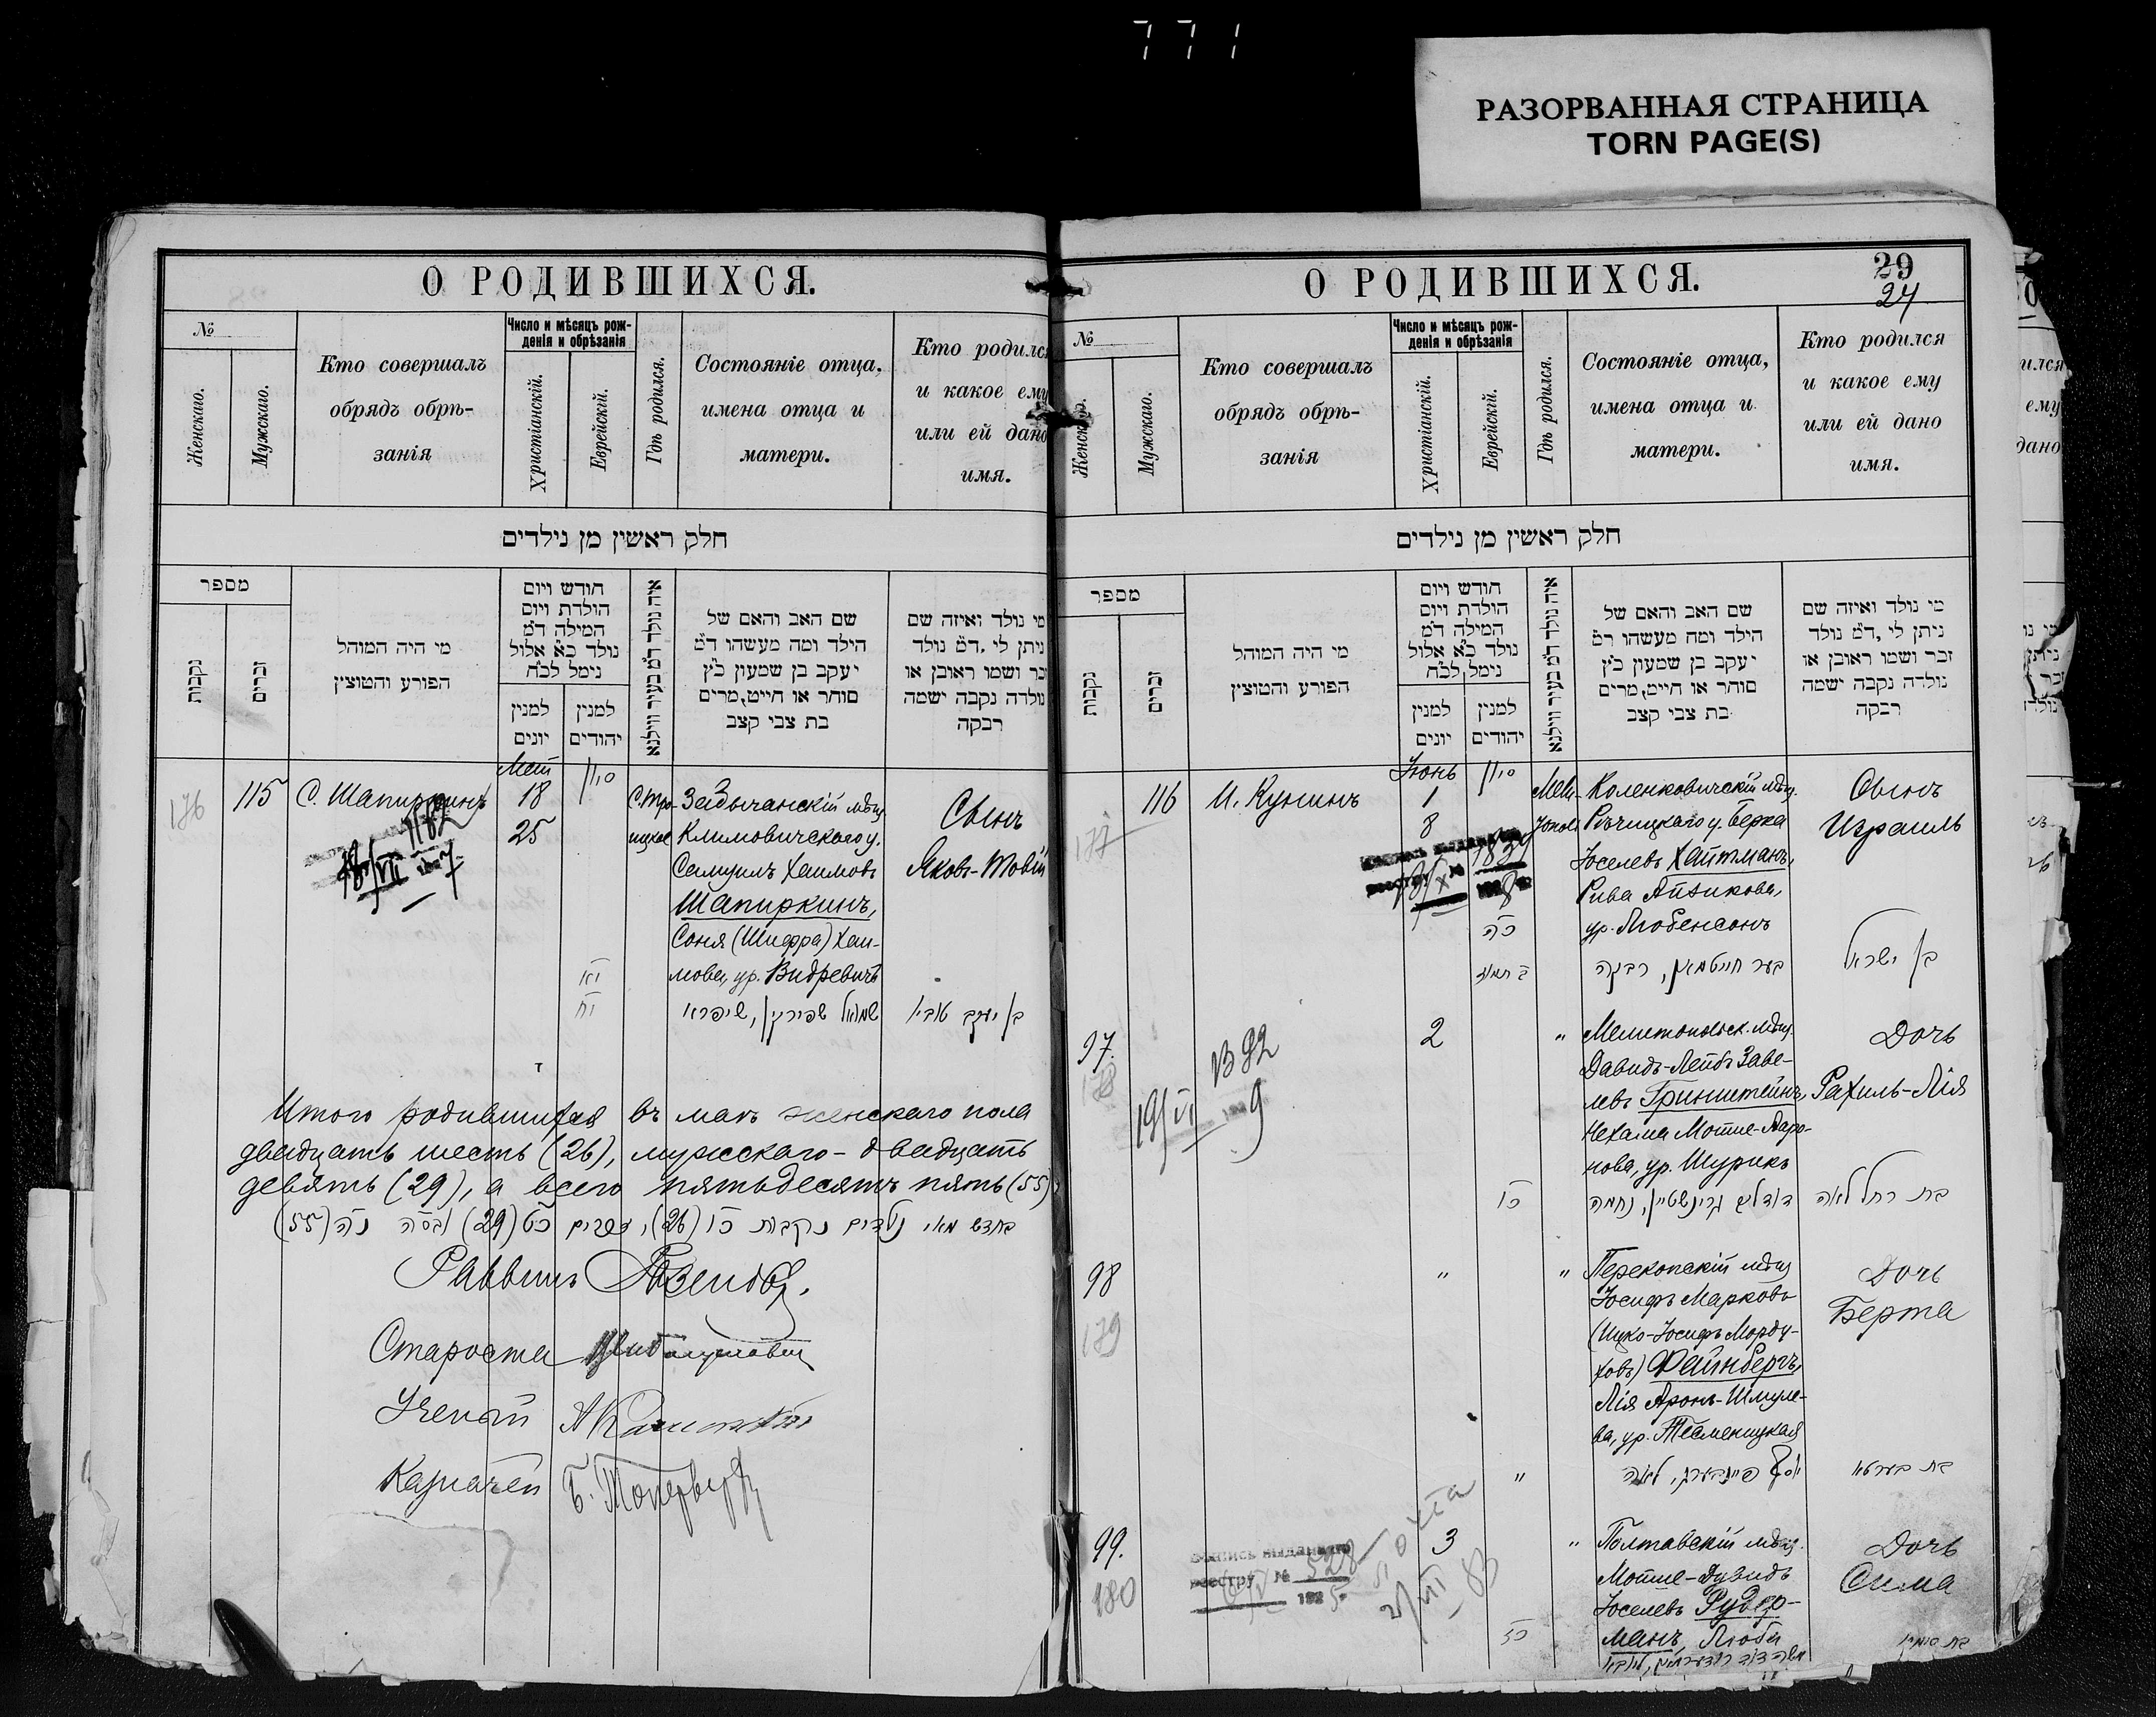 771
РАЗОРВАННАЯ СТРАНИЦА
TORN PAGE(S)
О РОДИВШИХСЯ.
№
Женскаго.
Мужскаго.
Кто совершалъ
обрядъ обрѣ-
занія
Число и мѣсяцъ рож-
денія и обрѣзанія
Христіанскій.
Еврейскій.
Гдѣ родился.
Состояніе отца,
имена отца и
матери.
Кто родился
и какое ему
или ей дано
имя.
חלק ראשין מן נילדים
מספר
נקבות
זכרים
מי היה המוהל
הפורע והטוצין
חודש ויום
הולדת ויום
המילה ד״מ
נולד כ״א אלול
נימל לכ״ח
למנין
יונים
למנין
יהודים
איה נולד ד״מ בעיר ווילנא
שם האב והאם של
הילד ומה מעשהו ד״מ
יעקב בן שמעון כ״ץ
סוחר או חייט, מרים
בת צבי קצב
מי נולד ואיזה שם
ניתן לי, ד״מ נולד
זכר ושמו ראובן או
נולדה נקבה ישמה
רבקה
Май
סיון
176
115
С. Шапиркинъ
18
25
1182
Задычанскій мѣщ.
Климовичскаго у.
Самуилъ Хаимовъ
Шапиркинъ,
Соня (Шифра) Хаи-
мова, ур. Видревичъ
Сынъ
Яковъ-Товій
יא
יח
שמואל שפירקין, שיפרא
בן יעקב טוביא
Итого родившихся въ маѣ женскаго пола
двадцать шесть (26), мужскаго - двадцать
девять (29), а всего пятьдесятъ пять (55)
בחדש מאי נולדים נקבות כו (26), זכרים כט (29) ובס״ה נה (55)
Раввинъ
Староста
Ученый
Казначей
О РОДИВШИХСЯ.
29
24
№
Женскаго.
Мужскаго.
Кто совершалъ
обрядъ обрѣ-
занія
Число и мѣсяцъ рож-
денія и обрѣзанія
Христіанскій.
Еврейскій.
Гдѣ родился.
Состояніе отца,
имена отца и
матери.
Кто родился
и какое ему
или ей дано
имя.
חלק ראשין מן נילדים
מספר
נקבות
זכרים
מי היה המוהל
הפורע והטוצין
חודש ויום
הולדת ויום
המילה ד״מ
נולד כ״א אלול
נימל לכ״ח
למנין
יונים
למנין
יהודים
איה נולד ד״מ בעיר ווילנא
שם האב והאם של
הילד ומה מעשהו ד״מ
יעקב בן שמעון כ״ץ
סוחר או חייט, מרים
בת צבי קצב
מי נולד ואיזה שם
ניתן לי, ד״מ נולד
זכר ושמו ראובן או
נולדה נקבה ישמה
רבקה
Іюнь
סיון
177
116
И. Кунинъ
1
8
Мели-
тополь
Коленковичскій мѣщ.
Рѣчицкаго у. Берка
Іоселевъ Хайтманъ,
Рива Айзикова,
ур. Любенсонъ
Сынъ
Израиль
כה
ב תמוז
בער חייטמאן, רבקה
בן ישראל
97.
178
1392
19/VI
2
"
Мелитопольск. мѣщ.
Давидъ-Лейбъ Заве-
левъ Гринштейнъ,
Нехама Мотше-Аро-
нова, ур. Шурикъ
Дочь
Рахиль-Лія
כו
דוד ליב גרינשטיין, נחמה
בת רחל לאה
98
179
"
"
Перекопскій мѣщ.
Іосифъ Марковъ
(Ицко-Іосифъ Морду-
ховъ) Файнбергъ,
Лія Аронъ-Шмуле-
ва, ур. Тесменицкая
Дочь
Берта
"
יוסף פיינבערג, לאה
בת בערטא
99.
180
реестру № 528
3
"
Полтавскій мѣщ.
Мотше-Дувидъ
Іоселевъ Рудер-
манъ, Люба
Дочь
Сима
כז